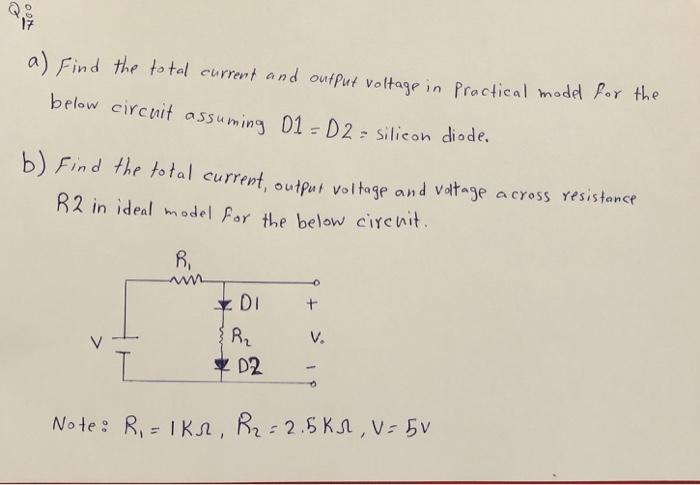 Q°₀
17
a) Find the total current and output voltage in Practical model for the
below circuit assuming D1 = D2 = silicon diode.
b) Find the total current, output voltage and voltage across resistance
R2 in ideal model for the below circuit.
R₁
D1
+
R₂
V
V₀
D2
-
Note: R₁ = 1KΩ, R₂ = 2.5KΩ, V = 5V